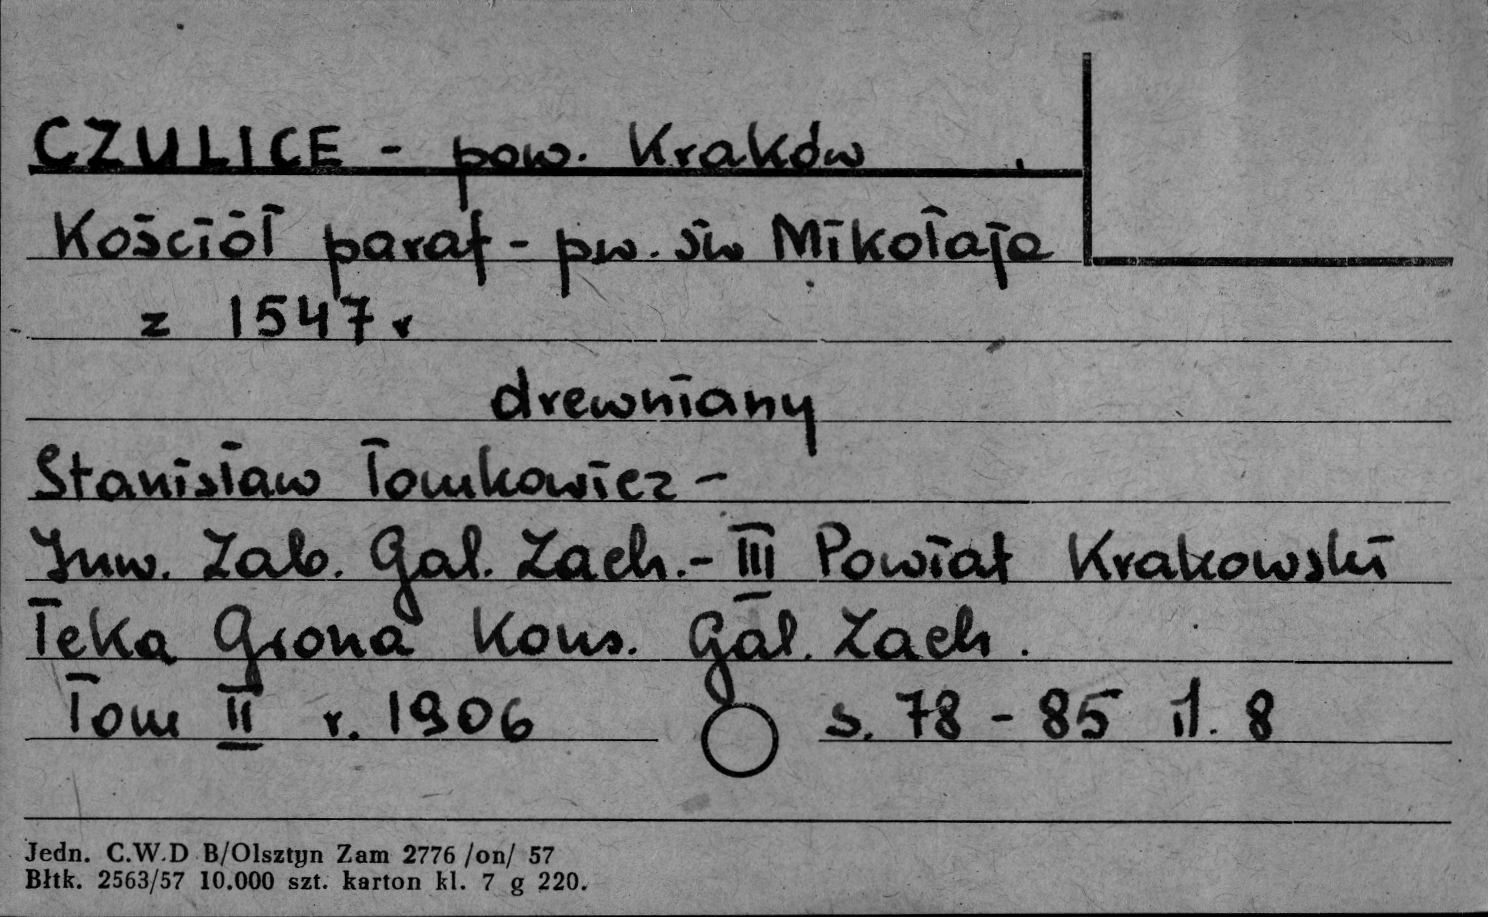 CZULICE - pow. Kraków
Kościół paraf - pw. św Mikołaja
z 1547 r
drewniany
Stanisław Tomkowicz -
Inw. Zab. Gal. Zach. - III Powiat Krakowski
Teka Grona Kons. Gal. Zach.
Tom II r. 1906 s. 78 - 85 il. 8
Jedn. C.W.D B/Olsztyn Zam 2776 /on/ 57
Błtk. 2563/57 10.000 szt. karton kl. 7 g 220.